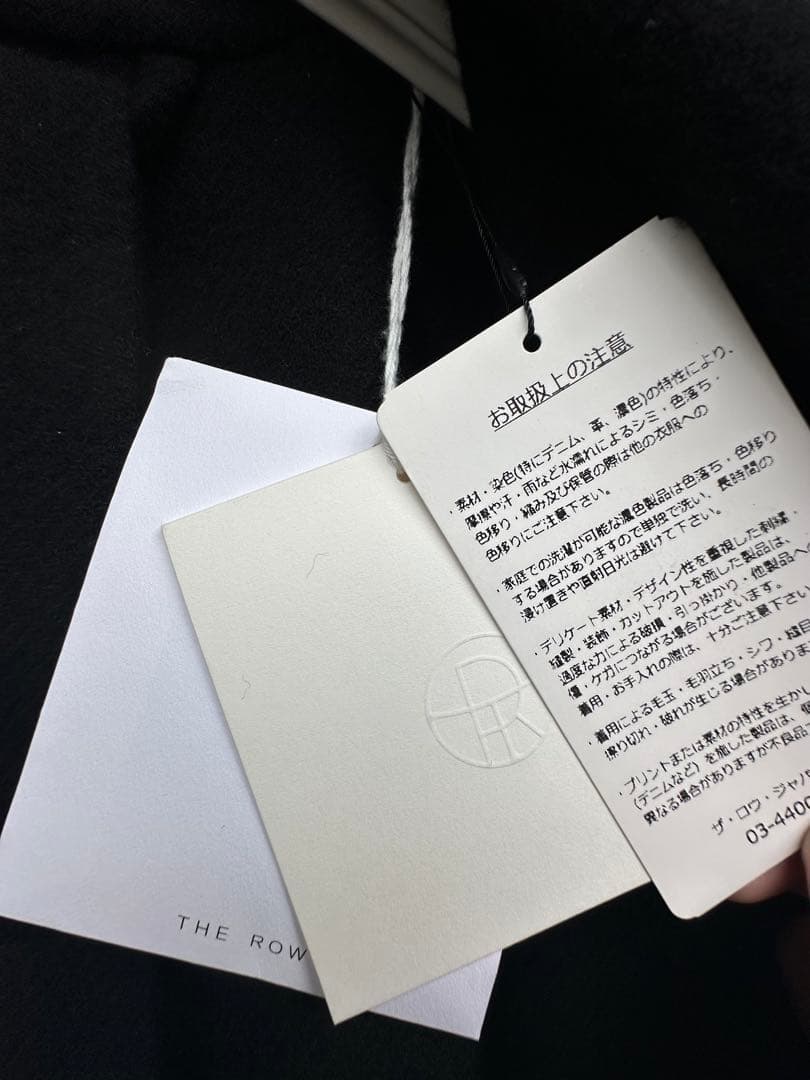 お取扱上の注意
素材・染色(特にデニム、革、濃色)の特性により、
摩擦や汗・雨など水濡れによるシミ・色落ち・
色移り・縮み及び保管の際は他の衣服への
色移りにご注意下さい。
・家庭での洗濯が可能な濃色製品は色落ち・色移り
する場合がありますので単独で洗い、長時間の
浸け置きや直射日光は避けて下さい。
・デリケート素材・デザイン性を重視した刺繍・
縫製・装飾・カットアウトを施した製品は、
過度な力による破損・引っ掛かり・他製品への
傷・ケガにつながる場合がございます。
着用・お手入れの際は、十分ご注意下さい
・着用による毛玉・毛羽立ち・シワ・縫目
擦り切れ・破れが生じる場合がありま
・プリントまたは素材の特性を生かし
(デニムなど)を施した製品は、
異なる場合がありますが不良品で
ザ・ロウ・ジャパ
03-4400
THE ROW